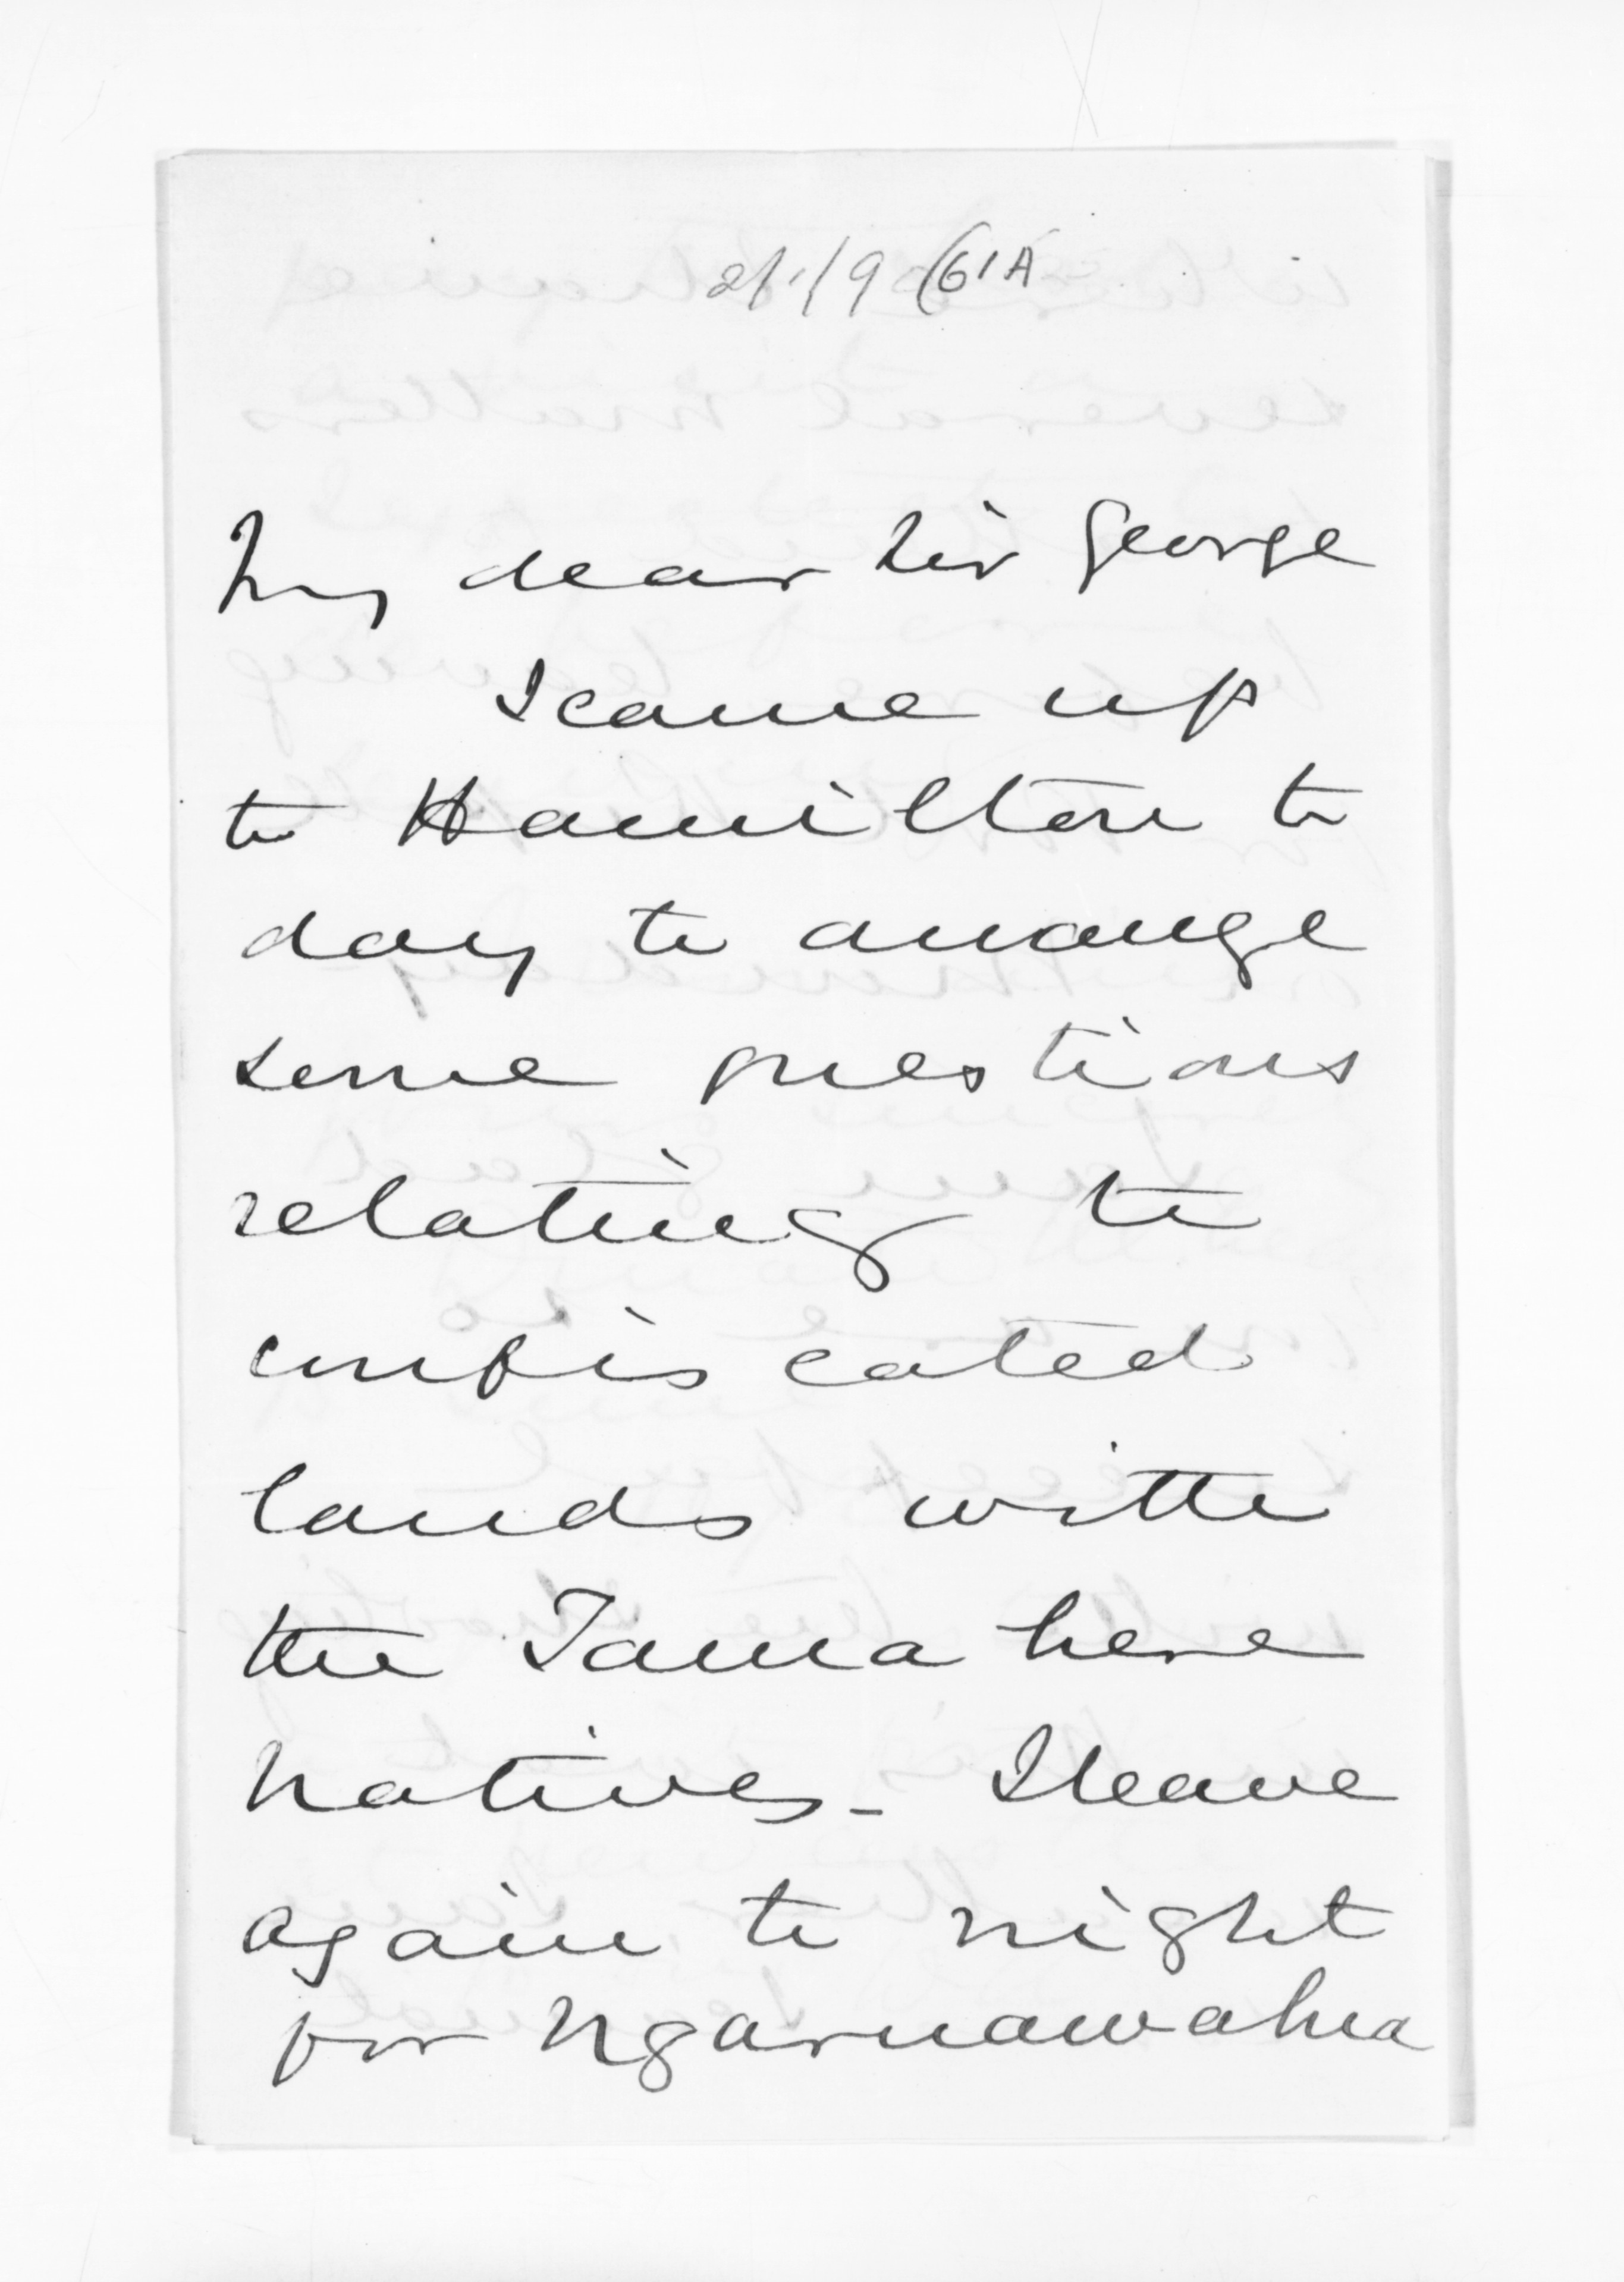 2/1/9 (61A
My dear Sir George
I came up
to Hamilton to
day to arrange
some questions
relating to
confiscated
lands with
the Tauna here
Natives - I leave
again to night
for Ngaruawahia